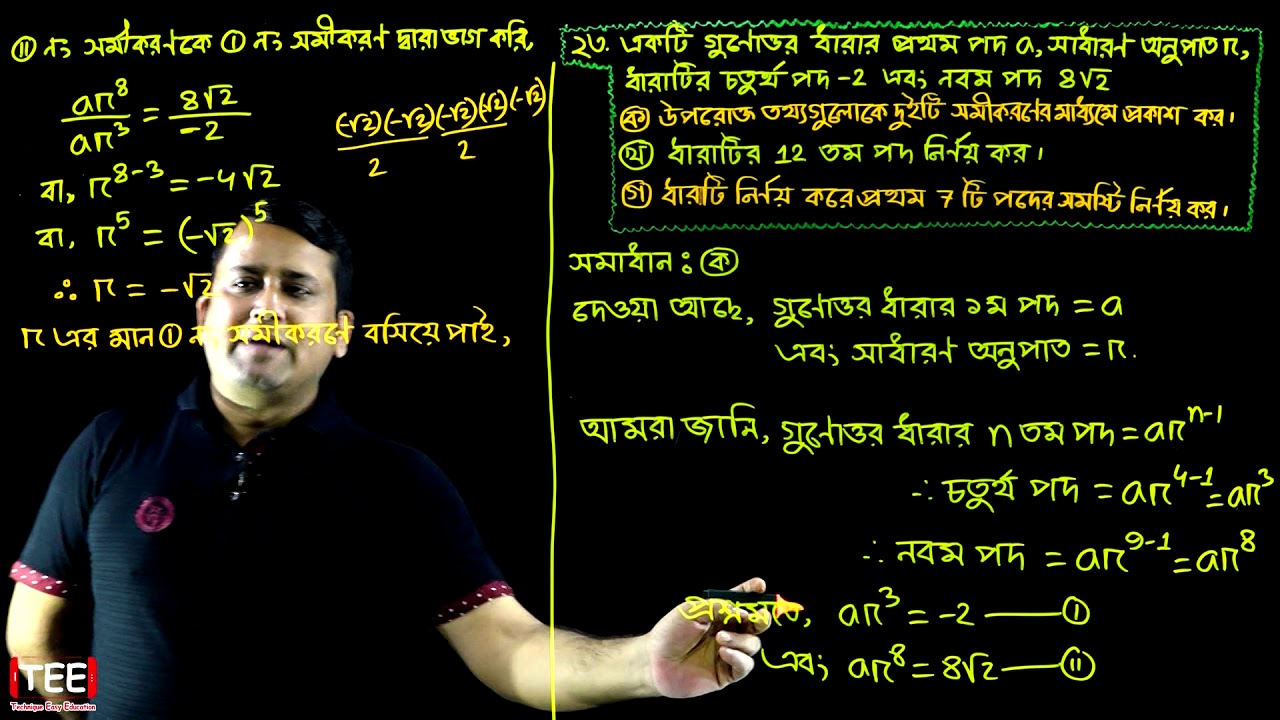 II নং সমীকরণকে I নং সমীকরণ দ্বারা ভাগ করি,
ar⁸/ar³ = 8√2/-2
(-√2)(-√2)(-√2)(-√2)(-√2)
2 2
বা, r⁸⁻³ = -4√2
বা, r⁵ = (-√2)⁵
∴ r = -√2
r এর মান I নং সমীকরণে বসিয়ে পাই,
২৩. একটি গুণোত্তর ধারার প্রথম পদ a, সাধারণ অনুপাত r,
ধারাটির চতুর্থ পদ -2 এবং নবম পদ 8√2
ক উপরোক্ত তথ্যগুলোকে দুইটি সমীকরণের মাধ্যমে প্রকাশ কর।
খ ধারাটির 12 তম পদ নির্ণয় কর।
গ ধারাটি নির্ণয় করে প্রথম 7 টি পদের সমষ্টি নির্ণয় কর।
সমাধান: ক
দেওয়া আছে, গুণোত্তর ধারার ১ম পদ = a
এবং সাধারণ অনুপাত = r.
আমরা জানি, গুণোত্তর ধারার n তম পদ = arⁿ⁻¹
∴ চতুর্থ পদ = ar⁴⁻¹ = ar³
∴ নবম পদ = ar⁹⁻¹ = ar⁸
প্রশ্নমতে, ar³ = -2 —— I
এবং ar⁸ = 8√2 —— II
TEE
Technique Easy Education